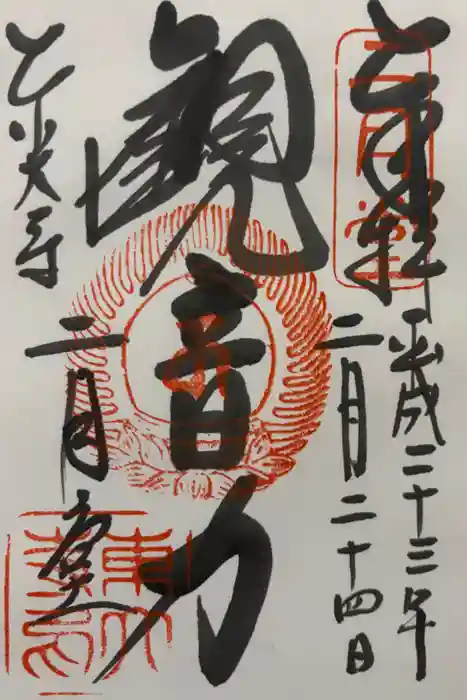 奉拝
二月堂
平成二十三年
二月二十四日
観音力
東大寺
二月堂